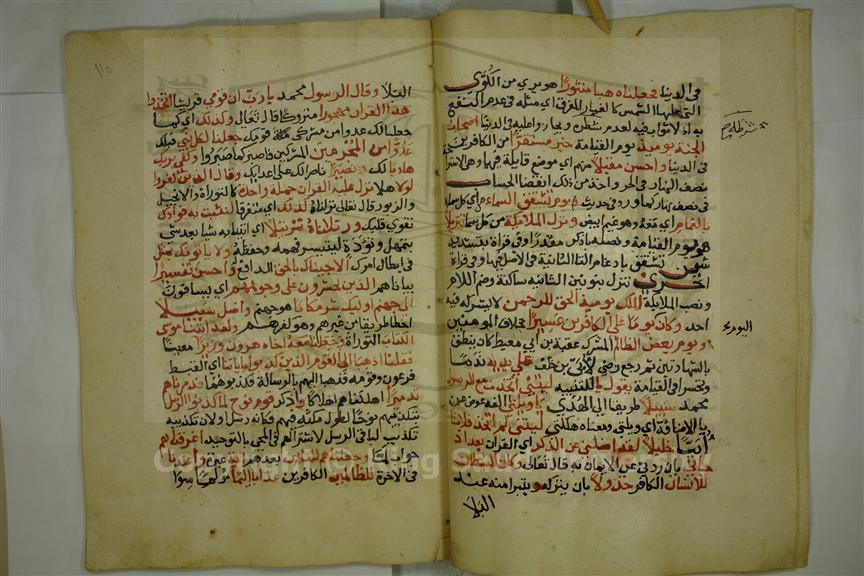 في الدنيا فجعلناه هبا منثورا هو ما يرى من الكوى
التي عليها الشمس كالغبار المفرق اي مثله في عدم النفع
به اذ لا ثواب فيه لعدم شرطه ويجازون عليه في الدنيا اصحاب
الجنة يوميذ يوم القيامة خير مستقرا من الكافرين
في الدنيا واحسن مقيلا منهم اي موضع قايلة فيها وهي الاستراحة
نصف النهار في الحر واخذ من ذلك انقضا الحساب
في نصف نهار كما ورد في حديث ويوم تشقق السماء اي كل سما
بالغمام اي معه وهو غيم ابيض ونزل الملايكة من كل سما تنزيلا
هو يوم القيامة ونصبه باذكر مقدرا وفي قراة بتشديد
شين تشقق بادغام التا الثانية في الاصل فيها وفي قراة
اخرى ننزل بنونين الثانية ساكنة وضم اللام
ونصب الملايكة الملك يوميذ الحق للرحمن لا يشركه فيه
احد وكان يوما على الكافرين عسيرا بخلاف المومنين
ويوم يعض الظالم المشرك عقبة بن ابي معيط كان ينطق
بالشهادتين ثم رجع رضى لابي بن خلف على يديه ندما
وتحسرا في القيامة يقول يا للتنبيه ليتني اتخذت مع الرسول
محمد سبيلا طريقا الى الهدى يا ويلتي الفه عوض عن
يا الاضافة اي ويلتي ومعناه هلكتي ليتني لم اتخذ فلانا
أبيا خليلا لقد اضلني عن الذكر اي القران بعد اذ
جاني بان ردني عن الايمان به قال تعالى وكان الشيطان
للانسان الكافر خذولا بان يتركه ويتبرا منه عند
البلا
١١٥
البلا وقال الرسول محمد يا رب ان قومي قريشا اتخذوا
هذا القران مهجورا متروكا قال تعالى وكذلك اي كما
جعلنا لك عدوا من مشركي قومك جعلنا لكل نبي قبلك
عدوا من المجرمين المشركين فاصبر كما صبروا وكفى بربك
هاديا لك ونصيرا ناصرا لك على اعدايك وقال الذين كفروا
لولا هلا نزل عليه القران جملة واحدة كالتوراة والانجيل
والزبور قال تعالى نزلناه كذلك اي متفرقا لنثبت به فوادك
نقوي قلبك ورتلناه ترتيلا اي اتينا به شيا بعد شي
بتمهل وتؤدة ليتيسر فهمه وحفظه ولا ياتونك بمثل
في ابطال امرك الا جيناك بالحق الدافع له واحسن تفسيرا
بيانا هم الذين يحشرون على وجوههم اي يساقون
الى جهنم اوليك شر مكانا هو جهنم واضل سبيلا
اخطا طريقا من غيرهم وهو كفرهم ولقد اتينا موسى
الكتاب التوراة وجعلنا معه اخاه هرون وزيرا معينا
فقلنا اذهبا الى القوم الذين كذبوا باياتنا اي القبط
فرعون وقومه فذهبا اليهم بالرسالة فكذبوهما فدمرناهم
تدميرا اهلكناهم اهلاكا واذكر قوم نوح لما كذبوا الرسل
بتكذيبهم نوحا لطول مكثه فيهم فكانه رسل او لان تكذيبه
تكذيب لباقي الرسل لاشتراكهم في المجي بالتوحيد اغرقناهم
جواب لما وجعلناهم للناس بعدهم اية عبرة واعتدنا
في الاخرة للظالمين الكافرين عذابا اليما مولما سوا